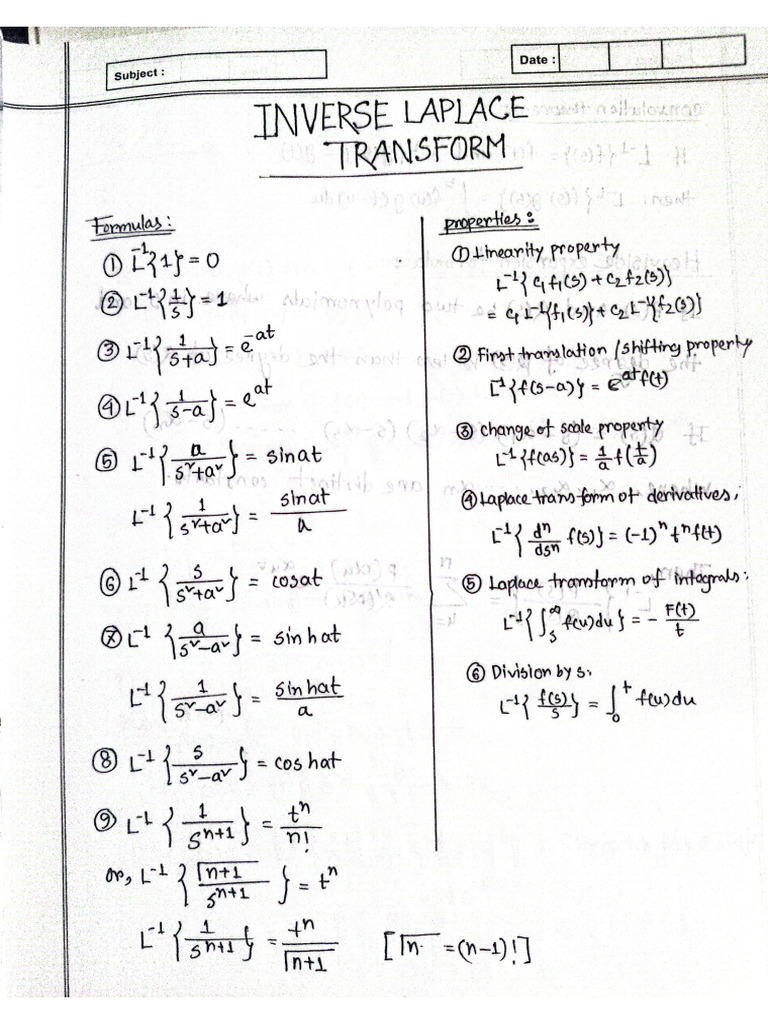 Subject :
Date :
INVERSE LAPLACE
TRANSFORM
Formulas:
① L⁻¹{1} = 0
② L⁻¹{1/s} = 1
③ L⁻¹{1/(s+a)} = e^-at
④ L⁻¹{1/(s-a)} = e^at
⑤ L⁻¹{a/(s²+a²)} = sinat
L⁻¹{1/(s²+a²)} = sinat/a
⑥ L⁻¹{s/(s²+a²)} = cosat
⑦ L⁻¹{a/(s²-a²)} = sinhat
L⁻¹{1/(s²-a²)} = sinhat/a
⑧ L⁻¹{s/(s²-a²)} = coshat
⑨ L⁻¹{1/s^(n+1)} = t^n/n!
or, L⁻¹{Γ(n+1)/s^(n+1)} = t^n
L⁻¹{1/s^(n+1)} = t^n/Γ(n+1) [Γn = (n-1)!]
properties:
① Linearity property
L⁻¹{c₁f₁(s) + c₂f₂(s)}
= c₁L⁻¹{f₁(s)} + c₂L⁻¹{f₂(s)}
② First translation/shifting property
L⁻¹{f(s-a)} = e^at f(t)
③ change of scale property
L⁻¹{f(as)} = 1/a f(t/a)
④ Laplace transform of derivatives;
L⁻¹{d^n/ds^n f(s)} = (-1)^n t^n f(t)
⑤ Laplace transform of integrals:
L⁻¹{∫_s^∞ f(u)du} = - F(t)/t
⑥ Division by s.
L⁻¹{f(s)/s} = ∫_0^t f(u)du